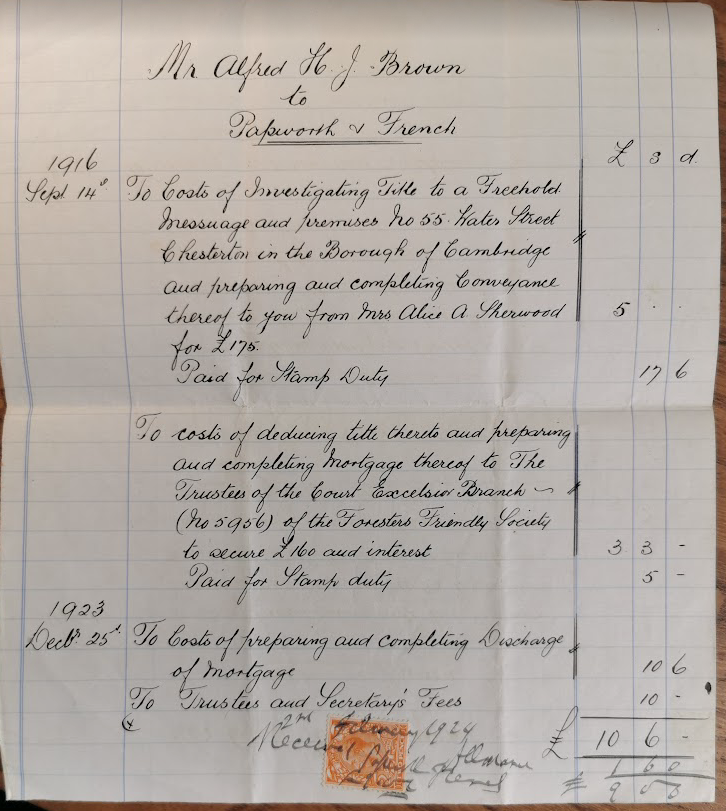 Mr Alfred H. J. Brown
to
Papworth & French
£ s d.
1916
Sept 14th To Costs of Investigating Title to a Freehold
Messuage and premises No 55 Water Street
Chesterton in the Borough of Cambridge
and preparing and completing Conveyance
thereof to you from Mrs Alice A Sherwood 5 . .
for £175.
Paid for Stamp Duty 17 6
To costs of deducing title thereto and preparing
and completing Mortgage thereof to The
Trustees of the Court Excelsior Branch
(No 5956) of the Foresters Friendly Society
to secure £160 and interest 3 3 -
Paid for Stamp duty 5 -
1923
Decbr 25th To Costs of preparing and completing Discharge
of Mortgage 10 6
To Trustees and Secretary's Fees 10 -
£ 10 6 -
2nd February 1924
Received